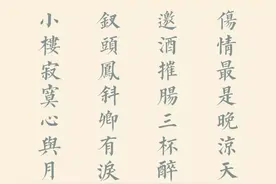 傷情最是晚涼天
邀酒摧腸三杯醉
釵頭鳳斜卿有淚
小樓寂寞心與月